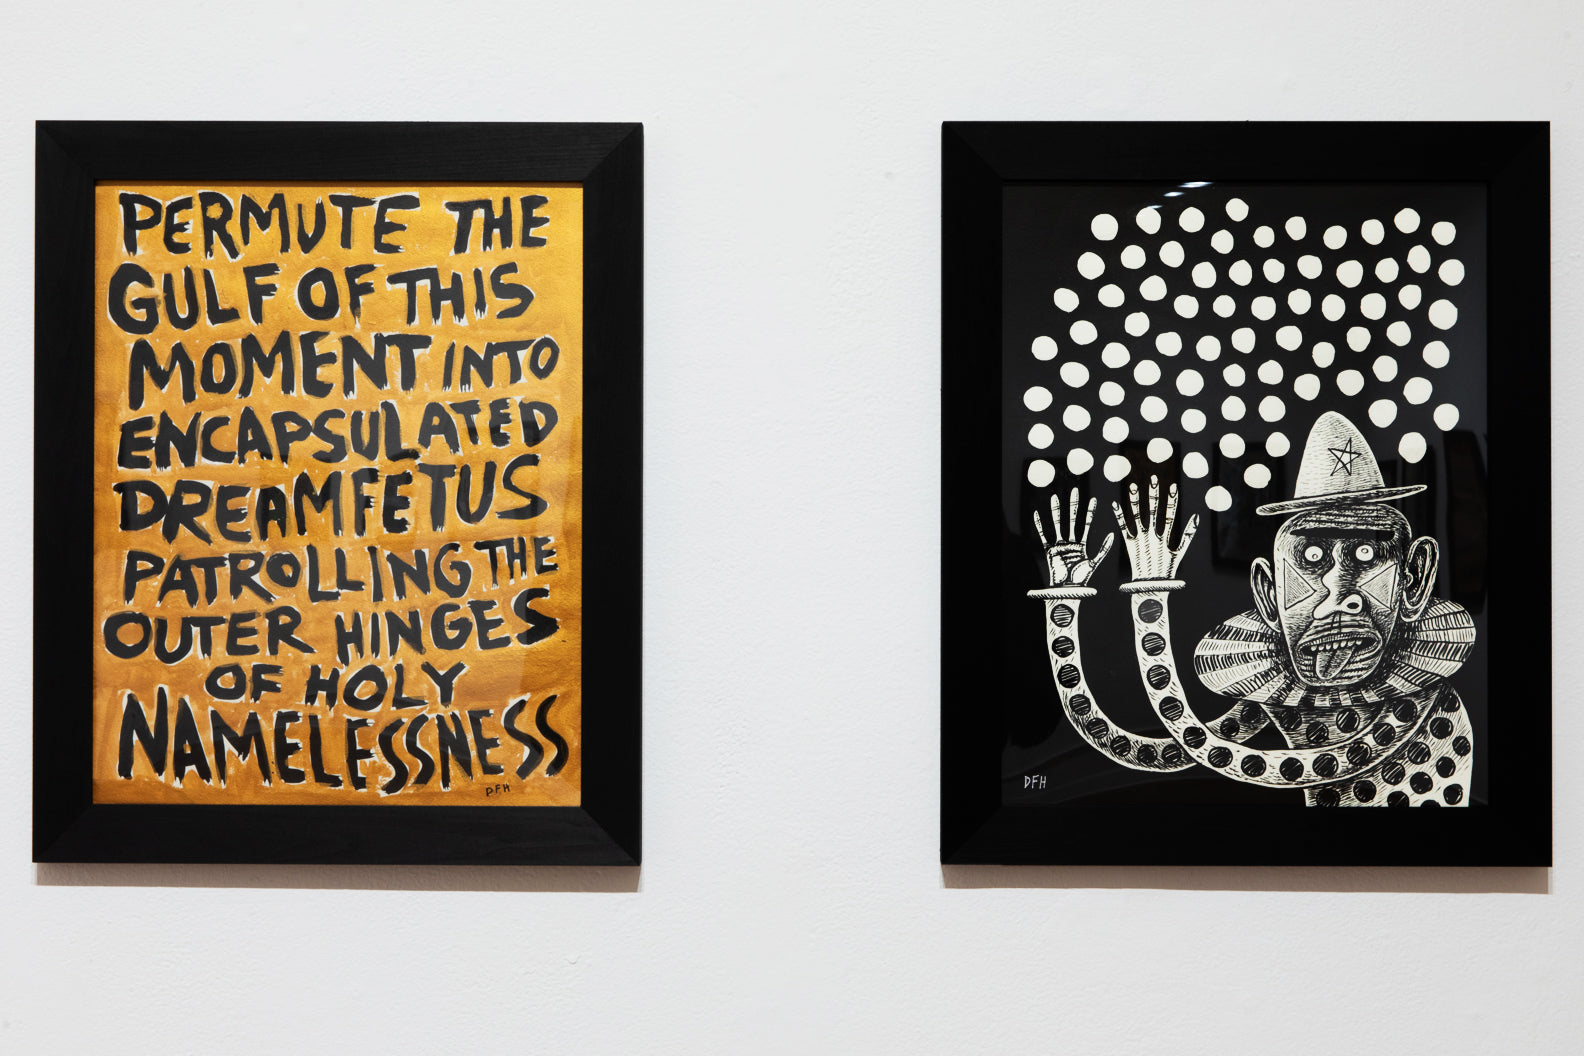 PERMUTE THE
GULF OF THIS
MOMENT INTO
ENCAPSULATED
DREAMFETUS
PATROLLING THE
OUTER HINGES
OF HOLY
NAMELESSNESS
DFH
DFH